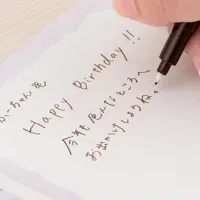 ーちゃん
Happy Birthday!!
今年も色んなところへ
お出かけしようね。